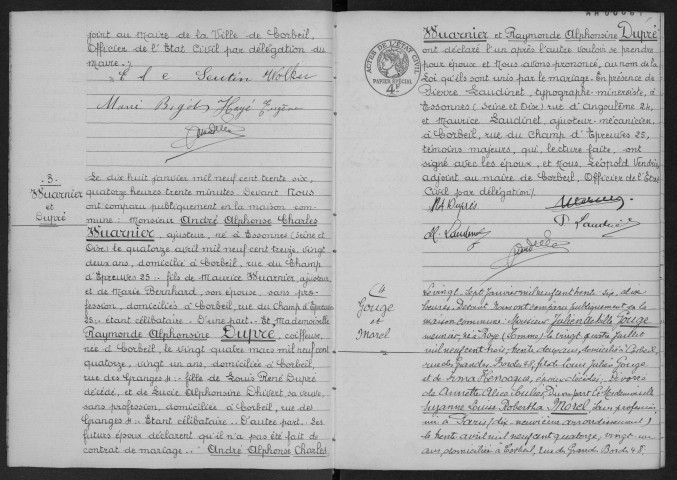 joint au Maire de la Ville de Corbeil,
Officier de l'Etat Civil par délégation du
Maire./.
Marie Bigot Hayé Eugène
3.
Wuarnier
et
Dupré
Le dix huit janvier mil neuf cent trente six,
quatorze heures trente minutes. Devant Nous
ont comparu publiquement en la maison com-
mune : Monsieur André Alphonse Charles
Wuarnier, ajusteur, né à Essonnes (Seine et
Oise) le quatorze avril mil neuf cent treize, vingt
deux ans, domicilié à Corbeil, rue du Champ
d'Epreuves 25 - fils de Maurice Wuarnier, ajusteur
et de Marie Bernhard, son épouse, sans pro-
fession, domiciliés à Corbeil, rue du Champ d'Epreuves
25 - étant célibataire. D'une part. Et Mademoiselle
Raymonde Alphonsine Dupré, coiffeuse,
née à Corbeil, le vingt quatre mars mil neuf cent
quatorze, vingt un ans, domiciliée à Corbeil,
rue des Granges - fille de Louis René Dupré
décédé, et de Lucie Alphonsine Thivert sa veuve,
sans profession, domiciliée à Corbeil, rue des
Granges - Etant célibataire. D'autre part. Les
futurs époux déclarent qu'il n'a pas été fait de
contrat de mariage. André Alphonse Charles
Wuarnier et Raymonde Alphonsine Dupré
ont déclaré l'un après l'autre vouloir se prendre
pour époux et Nous avons prononcé, au nom de la
Loi qu'ils sont unis par le mariage. En présence de
Pierre Laudinet, typographe-minerviste, à
Essonnes (Seine et Oise) rue d'Angoulème 24,
et Maurice Laudinet, ajusteur-mécanicien,
à Corbeil, rue du Champ d'Epreuves 25,
témoins majeurs, qui, lecture faite, ont
signé avec les époux, et Nous, Léopold
adjoint au maire de Corbeil, Officier de l'Etat
Civil par délégation./.
RA Dupré
P. Laudinet
M. Laudinet
ACTES DE L'ÉTAT CIVIL
PAPIER SPÉCIAL
4F
4
Gouge
et
Morel
Le vingt sept janvier mil neuf cent trente six, dix
heures. Devant Nous ont comparu publiquement en la
maison commune : Monsieur Julien Achille Gouge
né à Roye (Somme) le vingt quatre juillet
mil neuf cent trois, trente deux ans, domicilié à Corbeil,
rue du Grandes Bordes 48, fils de Louis Julien Gouge
et de époux décédés. Divorcé
de D'une part. Et Mademoiselle
Suzanne Louise Morel, sans profession,
née à Paris, dix-neuvième arrondissement,
le trente avril mil neuf cent quatorze, vingt un
ans, domiciliée à Corbeil, rue du Grandes Bordes 48.